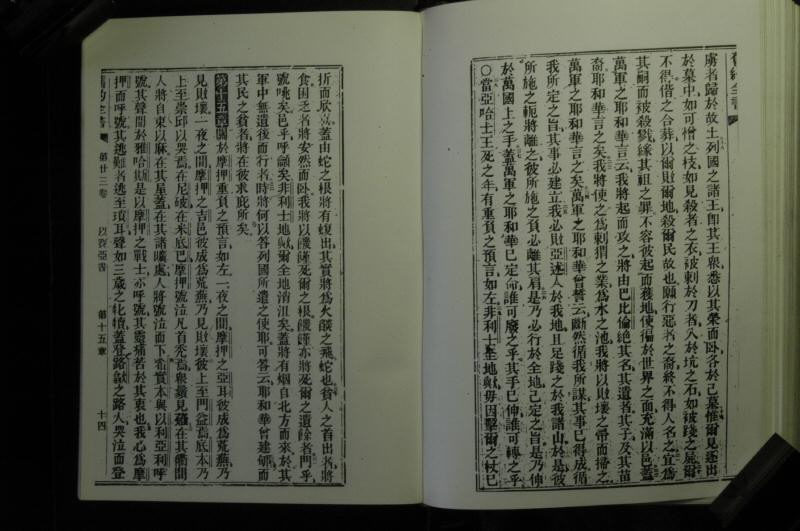 舊約全書
虜者歸於故土列國之諸王卽其王衆悉以其榮而臥各於己墓惟爾見逐出
於墓中如可憎之枝如見殺者之衣被刺於刀者入於坑之石如被踐之屍爾
不得偕之合葬以爾敗爾地殺爾民故也願行惡者之裔終不得人名之宜爲
其嗣而被殺戮緣其祖之罪不容彼起而獲地使徧於世界之面充滿以邑蓋
萬軍之耶和華言云我將起而攻之將由巴比倫絕其名其遺者其子及其苗
裔耶和華言之矣我將使之爲刺猬之業爲水之池我將以敗壞之帚而掃之
萬軍之耶和華言之矣萬軍之耶和華曾誓云斷然循我所謀其事已得成循
我所定之旨其事必建立我必敗亞述人於我地且足踐之於我諸山於是彼
所施之軛將離之彼所施之負必離其肩是乃必行於全地已定之旨是乃伸
於萬國上之手蓋萬軍之耶和華已定命誰可廢之乎其手已伸誰可轉之乎
○當亞哈士王死之年有重負之預言如左非利士全地歟毋因擊爾之杖已
折而欣喜蓋由蛇之根將有蝮出其實將爲火燄之飛蛇也貧人之首出者將
食困乏者將安然而臥我將以饑薨死爾之根饑謹亦將死爾之遺餘者門乎
號咷矣邑乎呼籲矣非利士地歟爾全地消沮矣蓋將有烟自北方而來於其
軍中無遺後而行者時將何以答列國所遣之使耶可答云耶和華曾建郇而
其民之貧者將在彼求庇所矣
第十五章關於摩押重負之預言如左一夜之間摩押之亞耳彼成爲荒蕪乃
見敗壞一夜之間摩押之吉邑彼成爲荒蕪乃見敗壞彼上至門益爲底本乃
上至崇邱以哭焉在尼破在米底巴摩押號泣凡首禿焉衆鬚見薙在其衢間
人將自束以麻在其屋蓋在其諸曠處人將號泣而下希實本與以利亞利呼
號其聲聞於雅哈斯是以摩押之戰士亦呼號其靈痛苦於其衷也我心爲摩
押而呼號其逃難者逃至瑣耳聲如三歲之牝犢蓋登路歙之路人哭泣而登
舊約全書 第廿三卷 以賽亞書 第十五章 十四